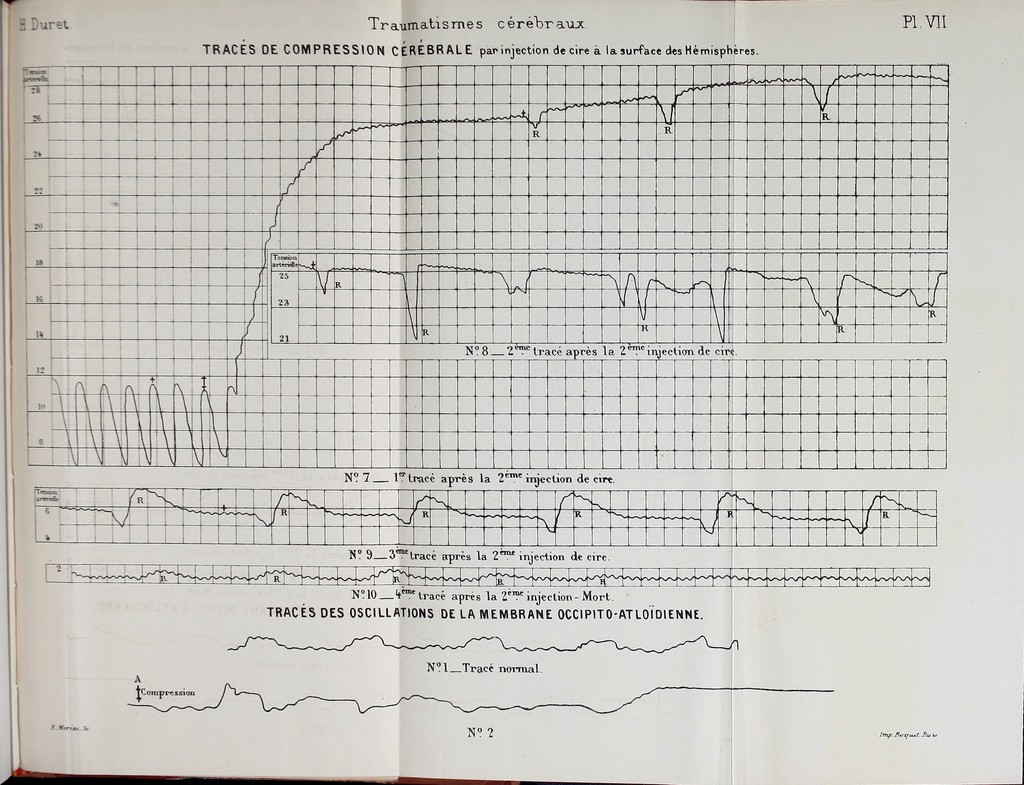 H. Duret.
Traumatismes cérébraux
Pl. VII
TRACÉS DE COMPRESSION CÉRÉBRALE par injection de cire à la surface des Hémisphères.
Tension
artérielle
28
26
24
22
20
18
16
14
12
10
8
R
R
R
Tension
artérielle
25
23
21
R
R
R
R
R
Nº 8 — 2ème tracé après la 2ème injection de cire.
Nº 7 — 1er tracé après la 2ème injection de cire.
Tension
artérielle
6
4
R
R
R
R
R
R
Nº 9 — 3ème tracé après la 2ème injection de cire.
2
R
R
R
R
R
Nº 10 — 4ème tracé après la 2ème injection - Mort.
TRACÉS DES OSCILLATIONS DE LA MEMBRANE OCCIPITO-ATLOÏDIENNE.
Nº 1 — Tracé normal.
A
Compression
Nº 2
Imp.